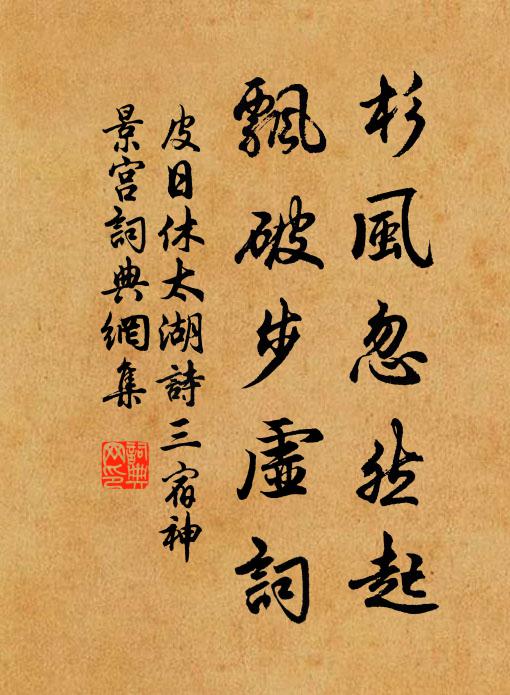 杉風忽然起
飄破步虛詞
皮日休太湖詩三宿神
景宮詞典網集
詞典
网印